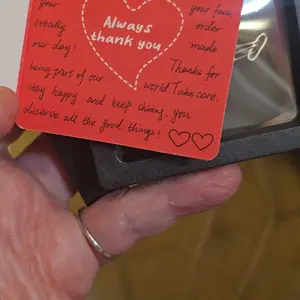 your your face,
totally order
our day! made
Always
thank you
being part of our Thanks for
world. Take care,
stay happy and keep shining. you
deserve all the good things!